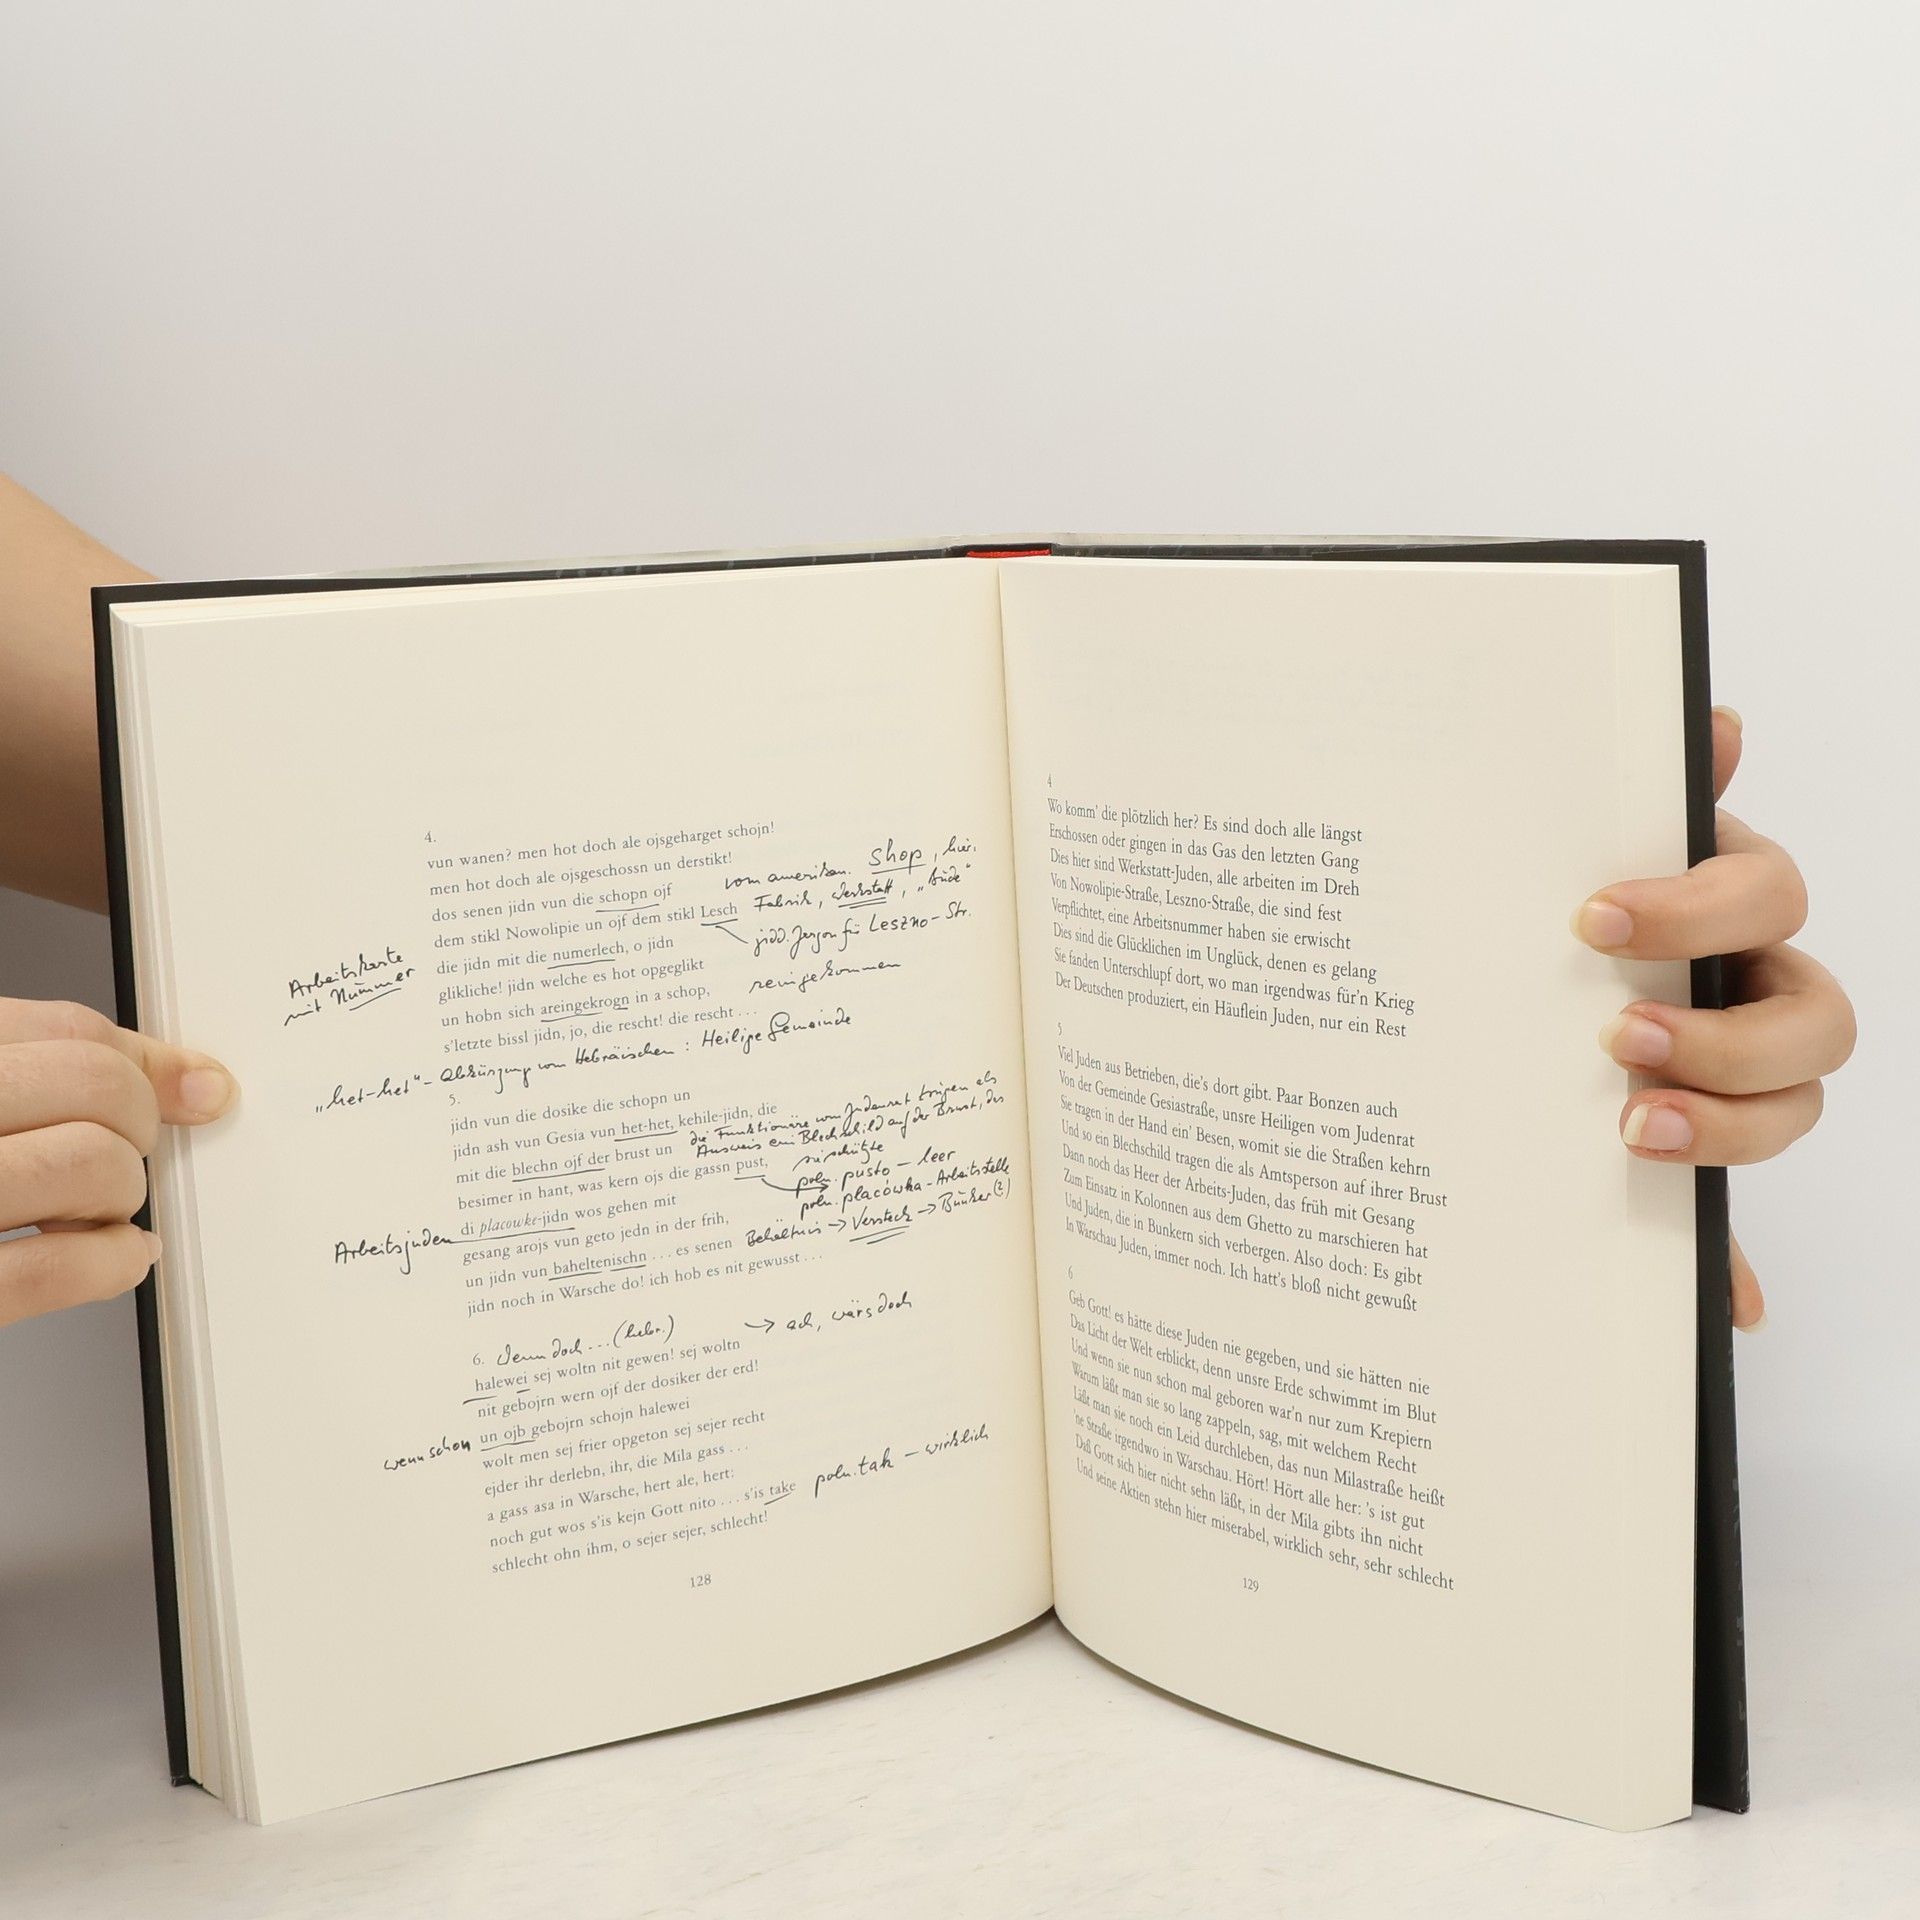 4.
vun wanen? men hot doch ale ojsgeharget schojn!
men hot doch ale ojsgeschossn un derstikt!
dos senen jidn vun die schopn ojf
vom amerikan. shop, hier.
dem stikl Nowolipie un ojf dem stikl Lesch
Fabrik, Werkstatt, „Bude“
die jidn mit die numerlech, o jidn
jidd. Jargon für Leszno-Str.
Arbeitskarte
mit Nummer
glikliche! jidn welche es hot opgeglikt
un hobn sich areingekrogn in a schop,
reingekommen
s'letzte bissl jidn, jo, die rescht! die rescht . . .
„het-het“ - Abkürzung vom Hebräischen : Heilige Gemeinde
5.
jidn vun die dosike die schopn un
jidn ash vun Gesia vun het-het, kehile-jidn, die
die Funktionäre vom Judenrat trugen als
mit die blechn ojf der brust un
Ausweis ein Blechschild auf der Brust, das
sie schützte
besimer in hant, was kern ojs die gassn pust,
poln. pusto – leer
di placowke-jidn wos gehen mit
poln. placówka - Arbeitsstelle
Arbeitsjuden
gesang arojs vun geto jedn in der frih,
un jidn vun baheltenischn . . . es senen
Behältnis → Versteck → Bunker (?)
jidn noch in Warsche do! ich hob es nit gewusst . . .
6. Wenn doch ... (hebr.)
→ ach, wärs doch
halewei sej woltn nit gewen! sej woltn
nit gebojrn wern ojf der dosiker der erd!
wenn schon
un ojb gebojrn schojn halewei
wolt men sej frier opgeton sej sejer recht
ejder ihr derlebn, ihr, die Mila gass . . .
a gass asa in Warsche, hert ale, hert:
noch gut wos s'is kejn Gott nito . . . s'is take
poln. tak – wirklich
schlecht ohn ihm, o sejer sejer, schlecht!
128
4
Wo komm' die plötzlich her? Es sind doch alle längst
Erschossen oder gingen in das Gas den letzten Gang
Dies hier sind Werkstatt-Juden, alle arbeiten im Dreh
Von Nowolipie-Straße, Leszno-Straße, die sind fest
Verpflichtet, eine Arbeitsnummer haben sie erwischt
Dies sind die Glücklichen im Unglück, denen es gelang
Sie fanden Unterschlupf dort, wo man irgendwas für'n Krieg
Der Deutschen produziert, ein Häuflein Juden, nur ein Rest
5
Viel Juden aus Betrieben, die's dort gibt. Paar Bonzen auch
Von der Gemeinde Gesiastraße, unsre Heiligen vom Judenrat
Sie tragen in der Hand ein' Besen, womit sie die Straßen kehrn
Und so ein Blechschild tragen die als Amtsperson auf ihrer Brust
Dann noch das Heer der Arbeits-Juden, das früh mit Gesang
Zum Einsatz in Kolonnen aus dem Ghetto zu marschieren hat
Und Juden, die in Bunkern sich verbergen. Also doch: Es gibt
In Warschau Juden, immer noch. Ich hatt's bloß nicht gewußt
6
Geb Gott! es hätte diese Juden nie gegeben, und sie hätten nie
Das Licht der Welt erblickt, denn unsre Erde schwimmt im Blut
Und wenn sie nun schon mal geboren war'n nur zum Krepiern
Warum läßt man sie so lang zappeln, sag, mit welchem Recht
Läßt man sie noch ein Leid durchleben, das nun Milastraße heißt
'ne Straße irgendwo in Warschau. Hört! Hört alle her: 's ist gut
Daß Gott sich hier nicht sehn läßt, in der Mila gibts ihn nicht
Und seine Aktien stehn hier miserabel, wirklich sehr, sehr schlecht
129